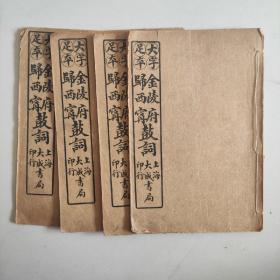 大字
足夲
金陵府
歸西寧
鼓詞
上海
大成書局
印行
大字
足夲
金陵府
歸西寧
鼓詞
上海
大成書局
印行
大字
足夲
金陵府
歸西寧
鼓詞
上海
大成書局
印行
大字
足夲
金陵府
歸西寧
鼓詞
上海
大成書局
印行